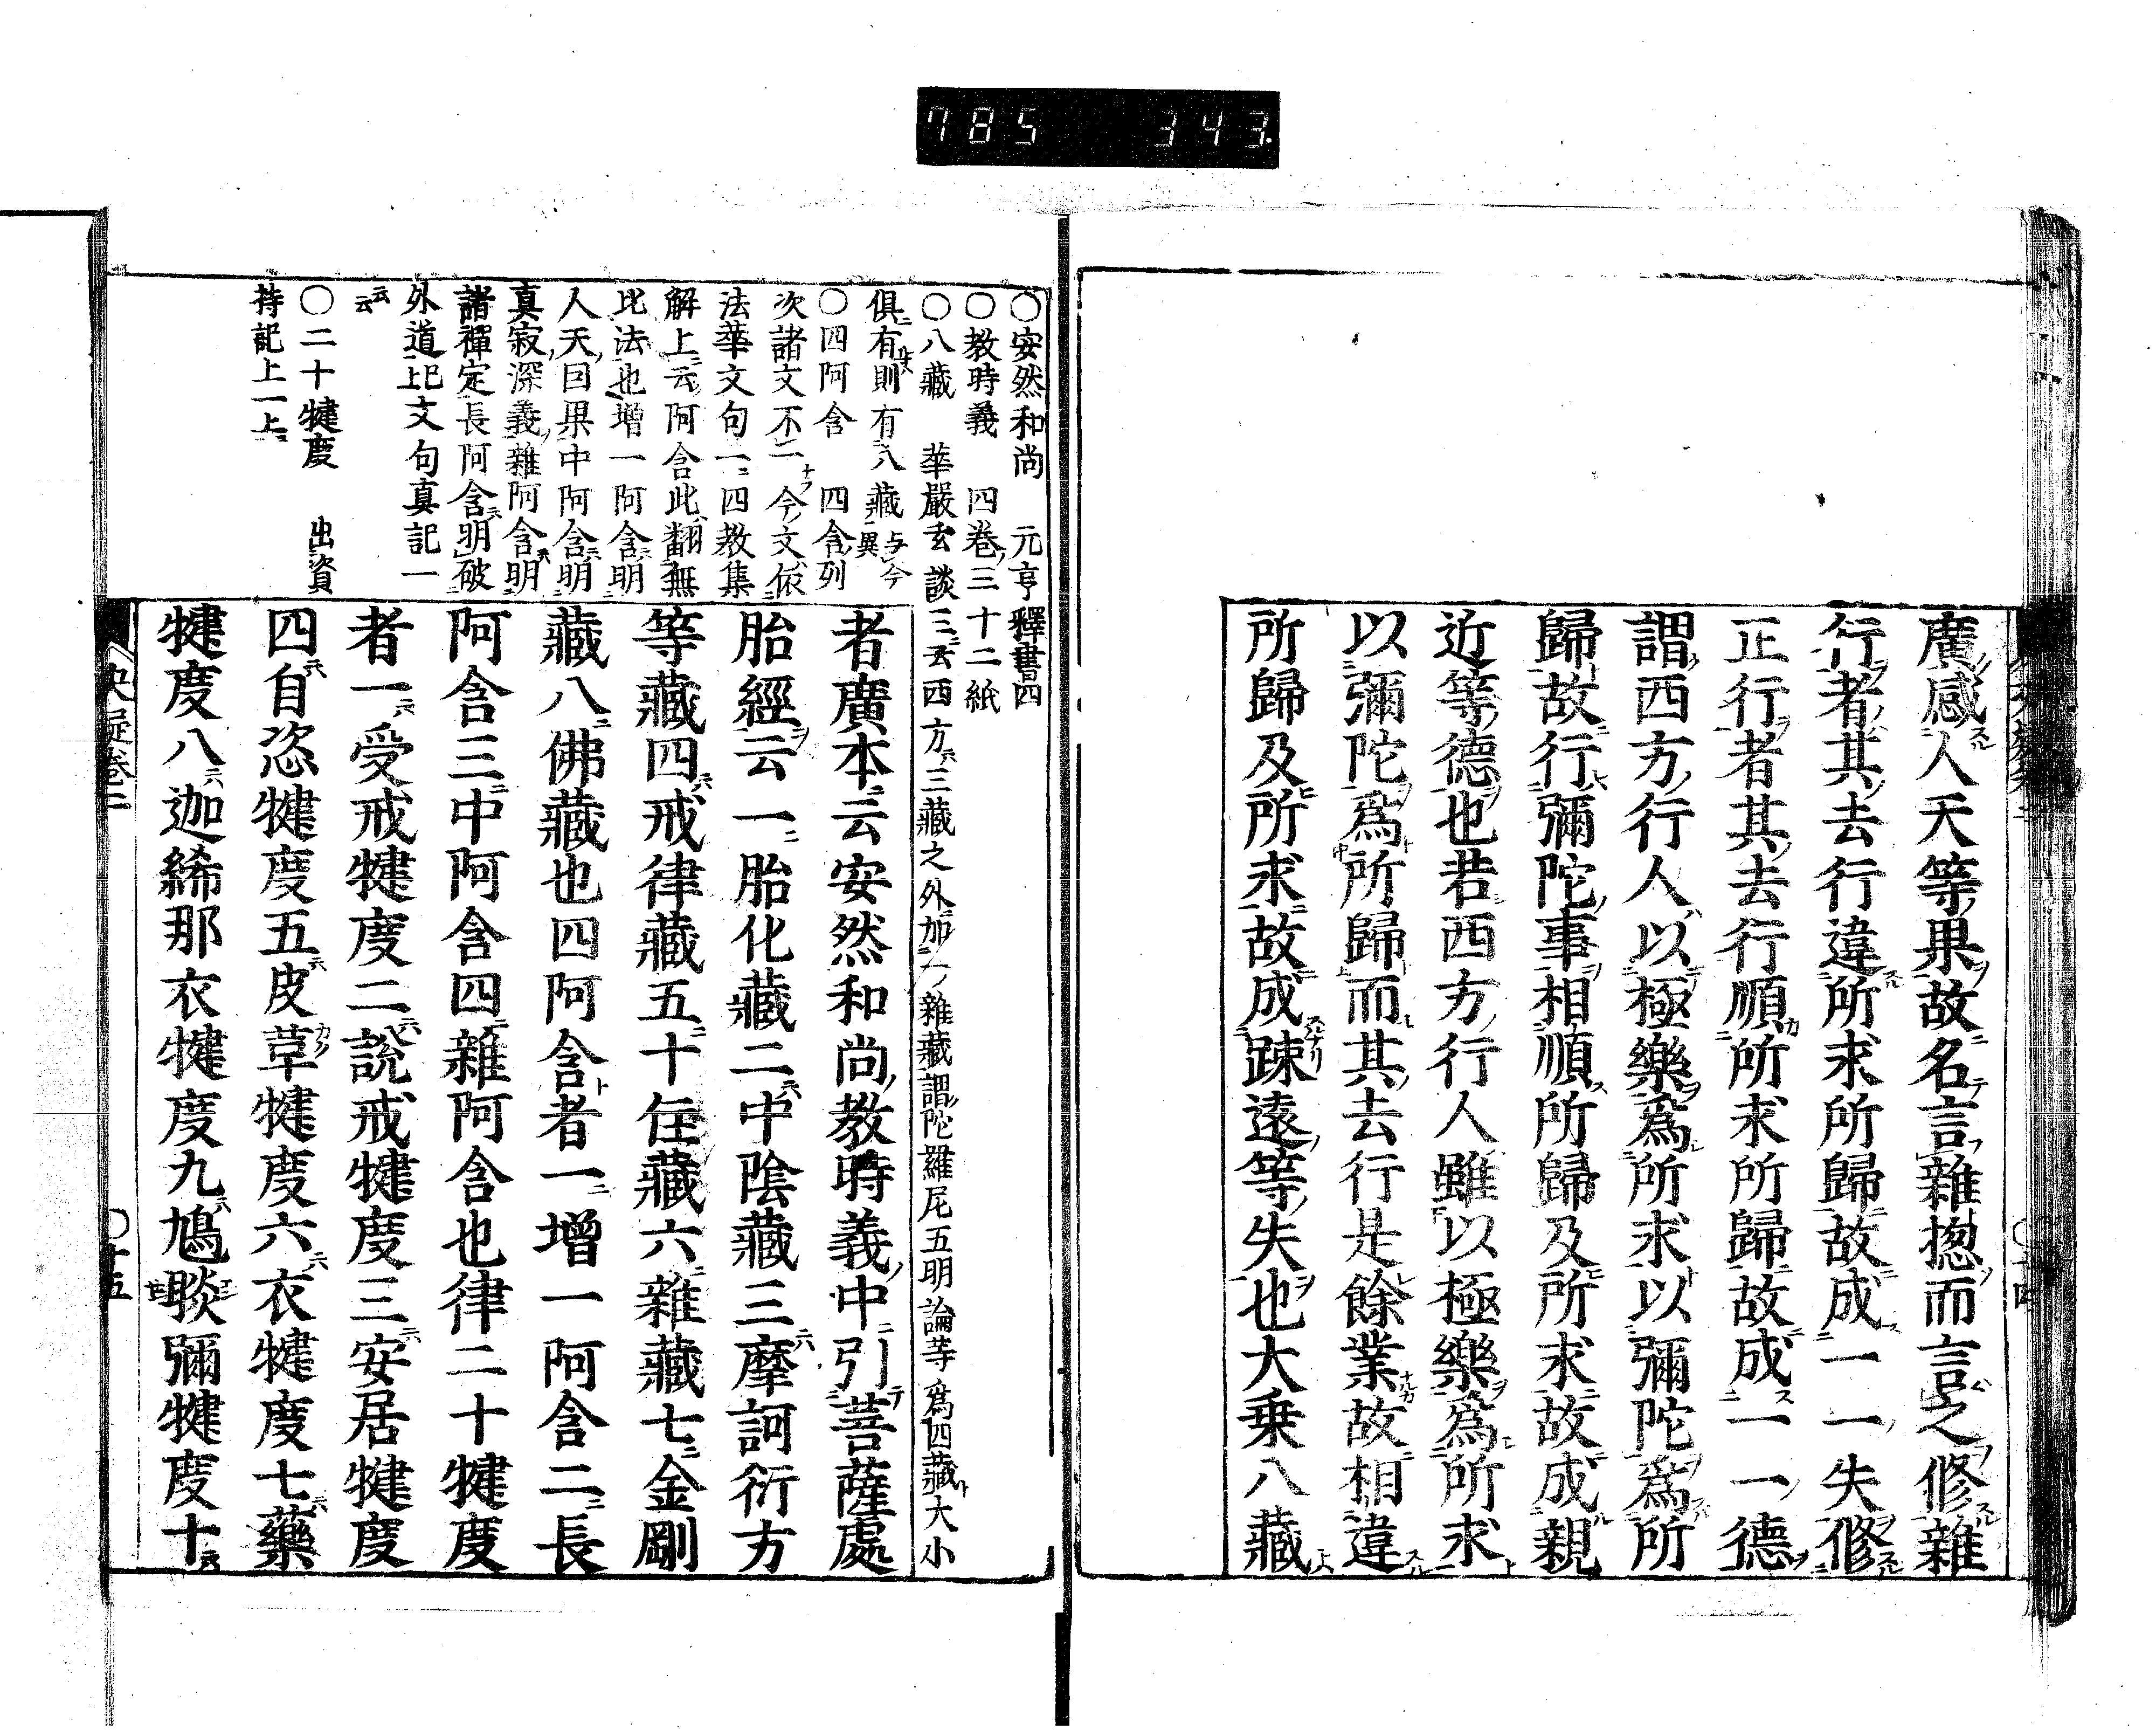 785 343.
廣感人天等果故名言雜揔而言之修雜
行者其去行違所求所歸故成一一失修
正行者其去行順所求所歸故成一一德
謂西方行人以極樂爲所求以彌陀爲所
歸故行彌陀事相順所歸及所求故成親
近等德也若西方行人雖以極樂爲所求
以彌陀爲所歸而其去行是餘業故相違
所歸及所求故成踈遠等失也大乗八藏
〇安然和尚 元亨釋書四
〇教時義 四巻三十二紙
〇八藏 華嚴玄談三云西方三藏之外加一雜藏謂陀羅尼五明論等爲四藏大小
俱有則有八藏与今異
〇四阿含 四含列
次諸文不二今文依
法華文句一四教集
解上云阿含此翻無
比法也増一阿含明
人天因果中阿含明
真寂深義雜阿含明
諸禪定長阿含明破
外道上巳文句真記一
云云
〇二十犍度 出資
持記上一上
者廣本云安然和尚教時義中引菩薩處
胎經云一胎化藏二中陰藏三摩訶衍方
等藏四戒律藏五十住藏六雜藏七金剛
藏八佛藏也四阿含者一増一阿含二長
阿含三中阿含四雜阿含也律二十犍度
者一受戒犍度二說戒犍度三安居犍度
四自恣犍度五皮草犍度六衣犍度七藥
犍度八迦絺那衣犍度九鳩睒彌犍度十
決疑巻二
〇十五